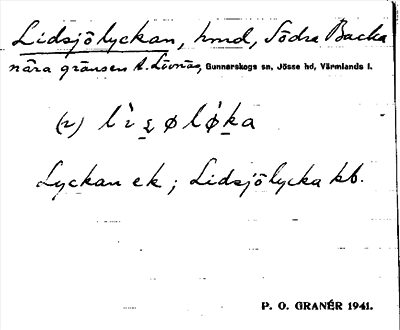 Lidsjölyckan, hmd, Södra Backa
nära gränsen t. Lövnäs, Gunnarskogs sn, Jösse hd, Värmlands l.
Lyckan ek; Lidsjölycka kb.
P. O. GRANÉR 1941.